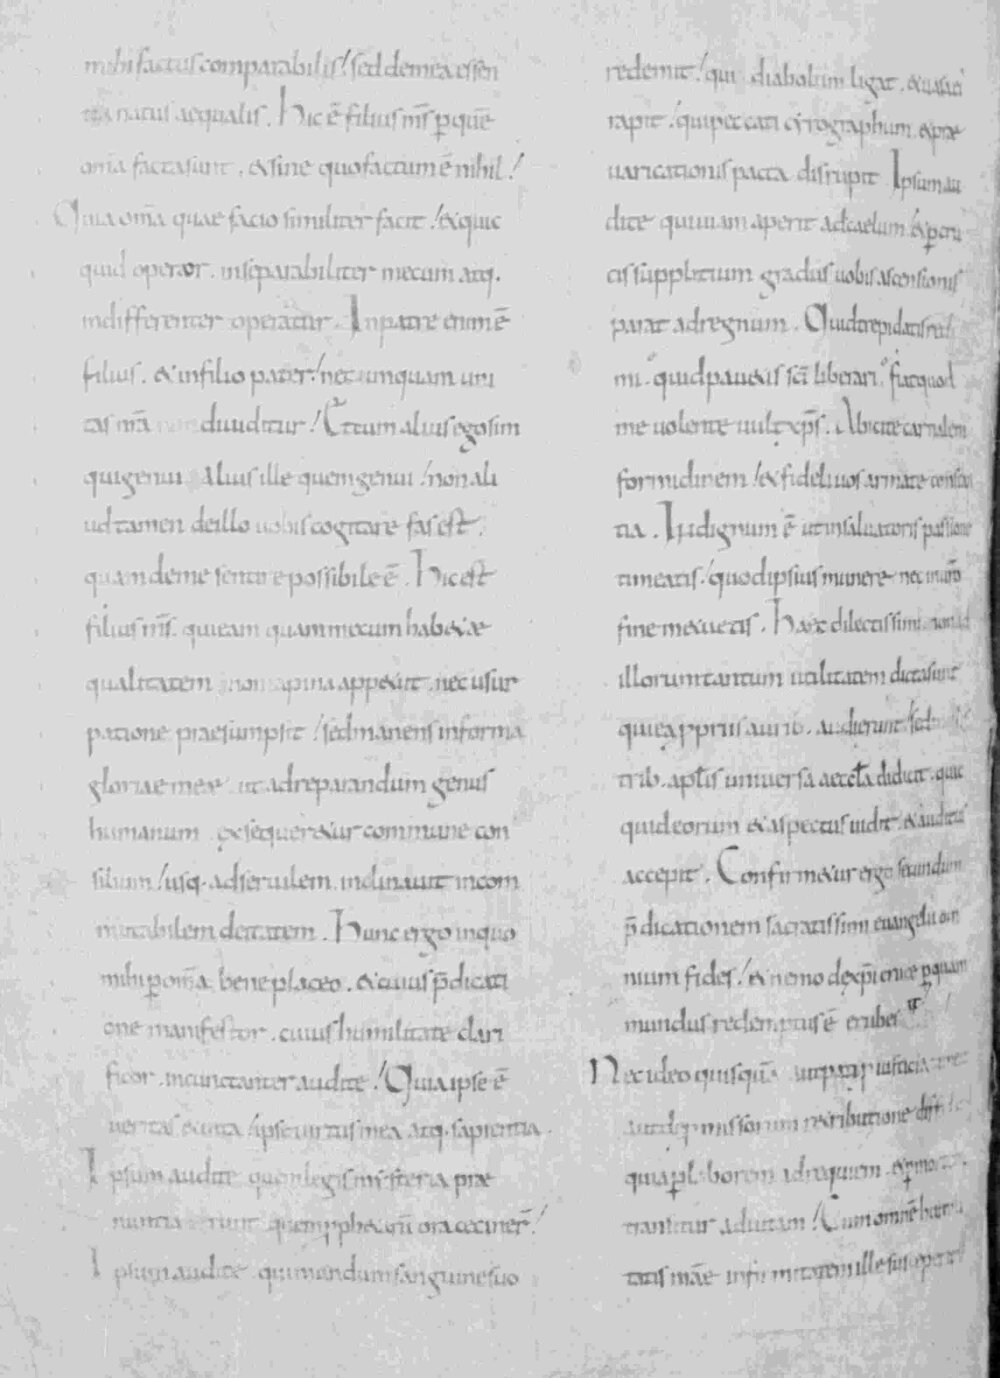 mihi factus comparabilis! sed demea essen
tia natus aequalis. Hic ē filius m̄s p̱ quē
om̄a facta sunt, & sine quo factum ē nihil!
Quia om̄a quae facio similiter facit! & quic
quid operor. inseparabiliter mecum atq.
indifferenter operatur. In patre enim ē
filius. & infilio pater! nec umquam uni
tas n̄ra diuiditur! Et cum alius ego sim
qui genui alius ille quem genui! non ali
ud tamen deillo uobis cogitare fas est.
quam deme sentire possibile ē. Hic est
filius m̄s. qui eam quam mecum hab& ae
qualitatem non rapina appetiit. nec usur
patione praesumpsit! sed manens informa
gloriae meae. ut adreparandum genus
humanum exsequer&ur commune con
silium! usq. adseruilem inclinauit incom
mutabilem deitatem. Hunc ergo inquo
mihi p̱ om̄a bene placeo. & cuius p̄dicati
one manifestor. cuius humilitate clari
ficor. incunctanter audite! Quia ipse ē
ueritas & uita! ipse uirtus mea atq. sapientia.
Ipsum audite quem legis misteria prae
nuntia erunt quem pphetarū ora cecinēr!
Ipsum audite qui mundum sanguine suo
redemit! qui diabolum ligat. & uasa ei
rapit! qui peccati cyrographum. & prae
uaricationis pacta disrupit Ipsum au
dite qui uiam aperit adcaelum! & p̱ cru
cis supplitium gradus uobis ascensionis
parat adregnum. Quid trepidatis redi
mi. quid pauetis scī liberari. fiat quod
me uolente uult xp̄s. Abicite carnalem
formidinem! & fideli uos armate constan
tia. Indignum ē ut insaluatoris passione
timeatis! quod ipsius munere nec inur̄o
fine metuetis. Haec dilectissimi non ad
illorum tantum utilitatem dicta sunt
qui ea pprius aurib. audierunt! sed
trib. aptl̄is uniuersa aeccl̄a didicit. quic
quid eorum & aspectus uidit. & auditus
accepit. Confirm&ur ergo secundum
p̄dicationem sacratissimi euangelii om
nium fides! & nemo dexp̄i cruce p̱ quam
mundus redemptus ē erubescat
Nec ideo quisquā aut pati p iusticia
aut de p missorum r&ributione diffidat
quia p̱ laborem adrequiem. & p̱ mortem
transitur aduitam! Cum omnē humili
tatis n̄rāe infirmitatem ille susceperit